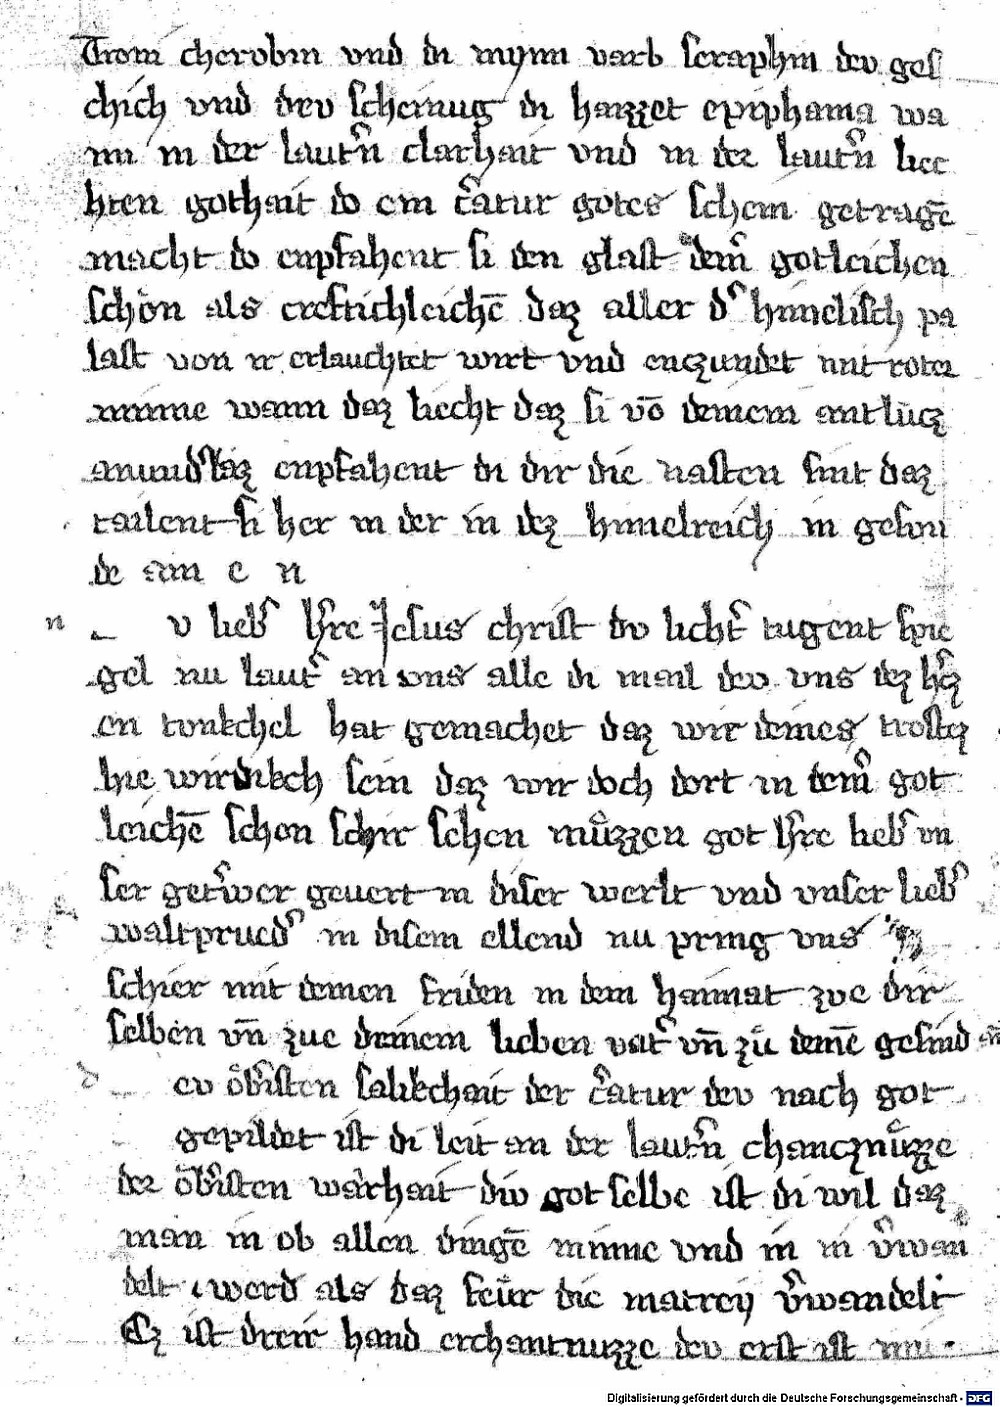 Trom cherobin vnd di mynn varb seraphin dev ges
chich vnd dev scheinug di haizzet epiphania wa
nn in der laut̓n clarhait vnd in der laut̓n liec
hten gothait do ein c̓atur gotes schein getragē
macht do enpfahent si den glast dem̓ gotleichen
schön als creftichleichē daz aller d̓ himelisch pa
last von ir erlauchtet wirt vnd enczundet mit roter
minne wann daz liecht daz si vō deinem antlücz
enpfahent di dir die nasten sint daz
tailent si her in der in dez himelreich in gesin
de am e n
n v lieb̓ h̓re Jesus christ dv licht̓ tugent spie
gel nu laut̓ an vns alle di mail dev vns dez h̓cz
en tvnkchel hat gemachet daz wir deines trostez
hie wirdikch sein daz wir doch dort in dem̓ got
leichē schon schir sehen müzzen got h̓re lieb̓ vn
ser get̓wer geuert in diser werlt vnd vnser lieb̓
waltprued̓ in disem ellend nu pring vns
schier mit deinen friden in dem haimat zve dir
selben vn̄ zue deinem lieben vat̓ vn̄ zů deinē gesind
d ev öb̓isten salikchait der c̓atur dev nach got
gepildet ist di leit an der laut̓n chancznüzze
der öb̓isten warhait div got selbe ist di wil daz
man in ob allen dingē minne vnd in in v̓wan
delt werd als daz feür die matrey v̓wandelt
Ez ist dreir hand erchantnuzze dev erst ist
Digitalisierung gefördert durch die Deutsche Forschungsgemeinschaft - DFG